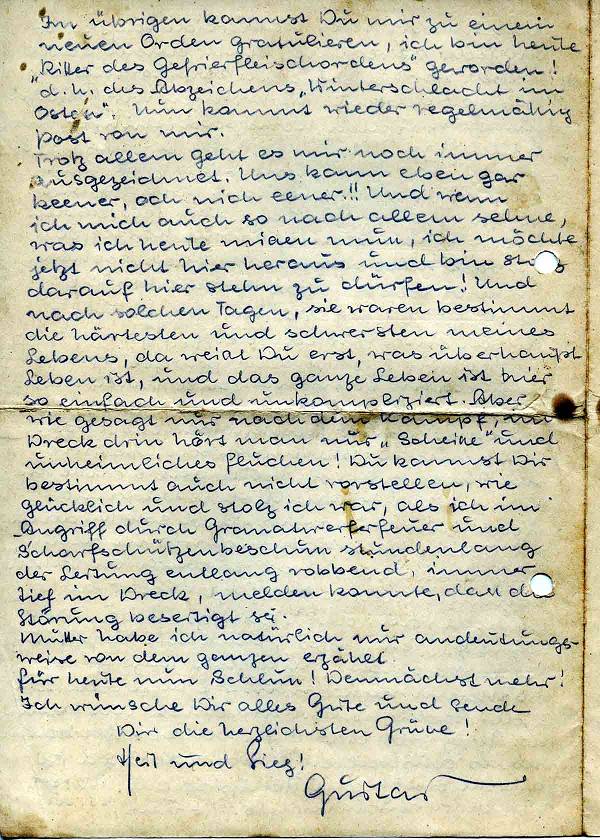 Im übrigen kannst Du mir zu einem
neuen Orden gratulieren, ich bin heute
„Ritter des Gefrierfleischordens" geworden!
d. h. des Abzeichens „Winterschlacht im
Osten". Nun kommt wieder regelmäßig
Post von mir.
Trotz allem geht es mir noch immer
ausgezeichnet. Uns kann eben gar
keener, och nich eener!!! Und wenn
ich mich auch so nach allem sehne,
was ich heute missen muss, ich möchte
jetzt nicht hier heraus und bin stolz
darauf hier stehn zu dürfen! Und
nach solchen Tagen, sie waren bestimmt
die härtesten und schwersten meines
Lebens, da weisst Du erst, was überhaupt
Leben ist, und das ganze Leben ist hier
so einfach und unkompliziert. Aber
wie gesagt nur nach dem Kampf, im
Dreck drin hört man nur „Scheiße" und
unheimliches fluchen! Du kannst Dir
bestimmt auch nicht vorstellen, wie
glücklich und stolz ich war, als ich im
Angriff durch Granatwerferfeuer und
Scharfschützenbeschuss stundenlang
der Leitung entlang robbend, immer
tief im Dreck, melden konnte, dass die
Störung beseitigt sei.
Mutter habe ich natürlich nur andeutungs-
weise von dem ganzen erzählt.
für heute nun Schluss! Demnächst mehr!
Ich wünsche Dir alles Gute und sende
Dir die herzlichsten Grüsse!
Heil und Sieg!
Gustav